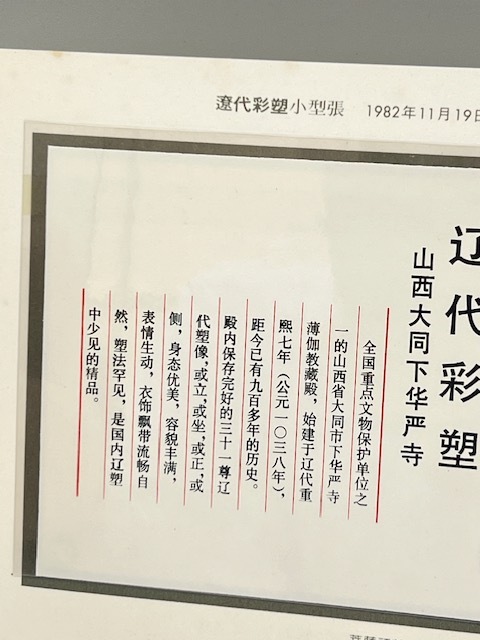 遼代彩塑小型張 1982年11月19日
辽代彩塑
山西大同下华严寺
全国重点文物保护单位之
一的山西省大同市下华严寺
薄伽教藏殿，始建于辽代重
熙七年（公元一〇三八年），
距今已有九百多年的历史。
殿内保存完好的三十一尊辽
代塑像，或立，或坐，或正，或
侧，身态优美，容貌丰满，
表情生动，衣饰飘带流畅自
然，塑法罕见，是国内辽塑
中少见的精品。